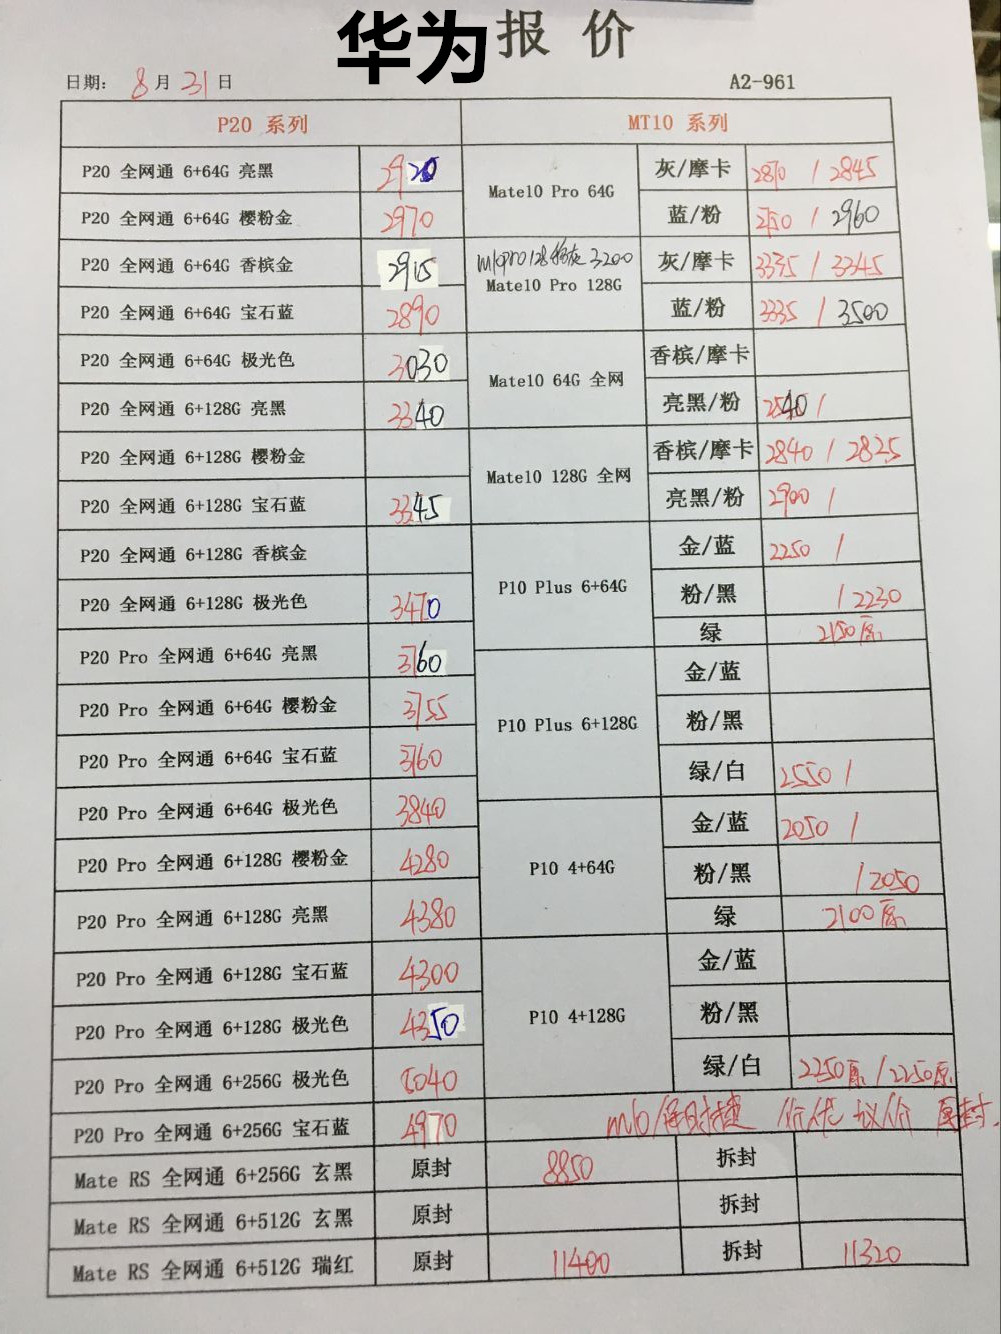 华为报价
日期: 8月31日 A2-961
P20 系列 MT10 系列
P20 全网通 6+64G 亮黑 2920
P20 全网通 6+64G 樱粉金 2970
P20 全网通 6+64G 香槟金 2915
P20 全网通 6+64G 宝石蓝 2890
P20 全网通 6+64G 极光色 3030
P20 全网通 6+128G 亮黑 3340
P20 全网通 6+128G 樱粉金
P20 全网通 6+128G 宝石蓝 3345
P20 全网通 6+128G 香槟金
P20 全网通 6+128G 极光色 3470
P20 Pro 全网通 6+64G 亮黑 3760
P20 Pro 全网通 6+64G 樱粉金 3755
P20 Pro 全网通 6+64G 宝石蓝 3760
P20 Pro 全网通 6+64G 极光色 3840
P20 Pro 全网通 6+128G 樱粉金 4280
P20 Pro 全网通 6+128G 亮黑 4380
P20 Pro 全网通 6+128G 宝石蓝 4300
P20 Pro 全网通 6+128G 极光色 4350
P20 Pro 全网通 6+256G 极光色 5040
P20 Pro 全网通 6+256G 宝石蓝 4970
Mate10 Pro 64G
灰/摩卡 2870 / 2845
蓝/粉 2750 / 2960
m10pro128 灰 3200
Mate10 Pro 128G
灰/摩卡 3335 / 3345
蓝/粉 3335 / 3500
Mate10 64G 全网
香槟/摩卡
亮黑/粉 2540 /
Mate10 128G 全网
香槟/摩卡 2840 / 2825
亮黑/粉 2900 /
P10 Plus 6+64G
金/蓝 2250 /
粉/黑 / 2230
绿 2150原
P10 Plus 6+128G
金/蓝
粉/黑
绿/白 2550 /
P10 4+64G
金/蓝 2050 /
粉/黑 / 2050
绿 2100原
P10 4+128G
金/蓝
粉/黑
绿/白 2250原 / 2250原
m10/保时捷 价优 议价 原封.
Mate RS 全网通 6+256G 玄黑 原封 8850 拆封
Mate RS 全网通 6+512G 玄黑 原封 拆封
Mate RS 全网通 6+512G 瑞红 原封 11400 拆封 11320